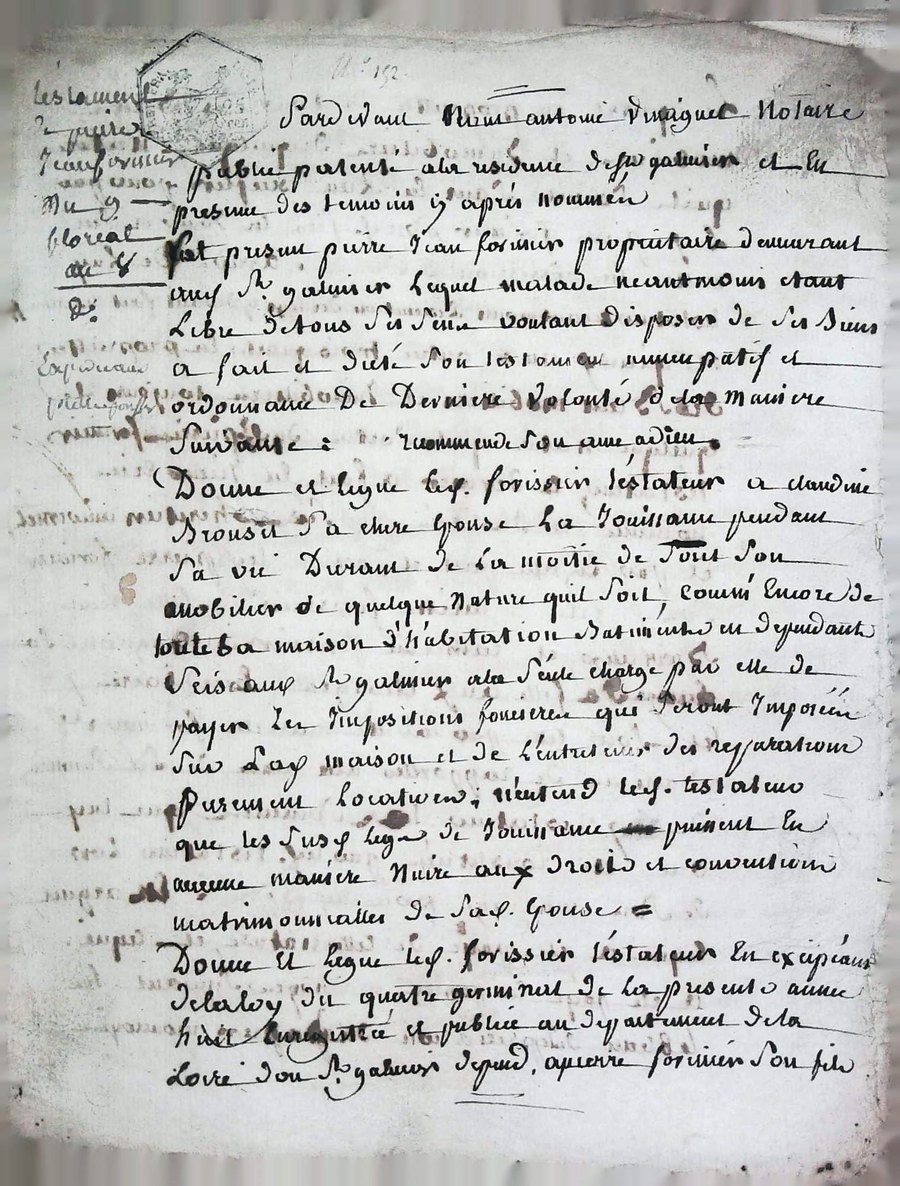 N° 152
testament
de pierre
Jean forissier
Du 9
floreal
an 8
Pardevant Nous antoine Vinaguet Notaire
public patenté a la residence de St galmier et En
presence des temoins cy aprés nommés
fut present pierre Jean forissier proprietaire demeurant
aud St galmier Lequel malade neantmoins etant
Libre de tous ses sens voulant disposer de ses Biens
a fait et dicté son testament nuncupatif et
ordonnance De Derniere Volonté de la maniere
suivante : recommende son ame a dieu.
Donne et legue led. forissier testateur a claudine
Brouset sa chere Epouse La Jouissance pendant
sa vie Durant de La moitié de Tout son
mobilier de quelque Nature quil soit, comme Encore de
toute sa maison d'habitation Batiments en dependants
seis aud St galmier a la seule charge par elle de
payer les Impositions foncieres qui seront Imposées
sur Lad maison et de L'entretien des reparations
purement Locatives; n'entend led. testateur
que les susd legs de Jouissance puissent En
aucune maniere Nuire aux droits et conventions
matrimonialles de sad. Epouse =
Donne Et Legue led. forissier testateur En exceptant
de la loy du quatre germinal de La presente année
huit Enregistrée et publiée au departement de la
Loire dou St galmier depend, a pierre forissier son fils